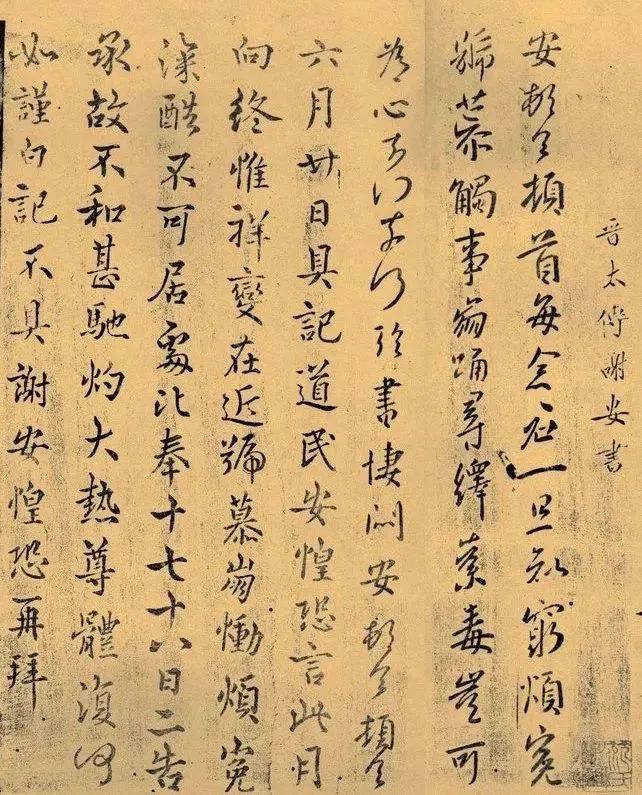 晉太傅謝安書
安頓首頓首每念君一旦知窮煩冤
號慕觸事崩踴尋繹荼毒豈可
為心奈何奈何臨書悽悶安頓首頓首
六月廿日具記道民安惶恐言此月
向終惟祥變在近號慕崩慟煩冤
深酷不可居處比奉十七十八日二告
承故不和甚馳灼大熱尊體復何
如謹白記不具謝安惶恐再拜